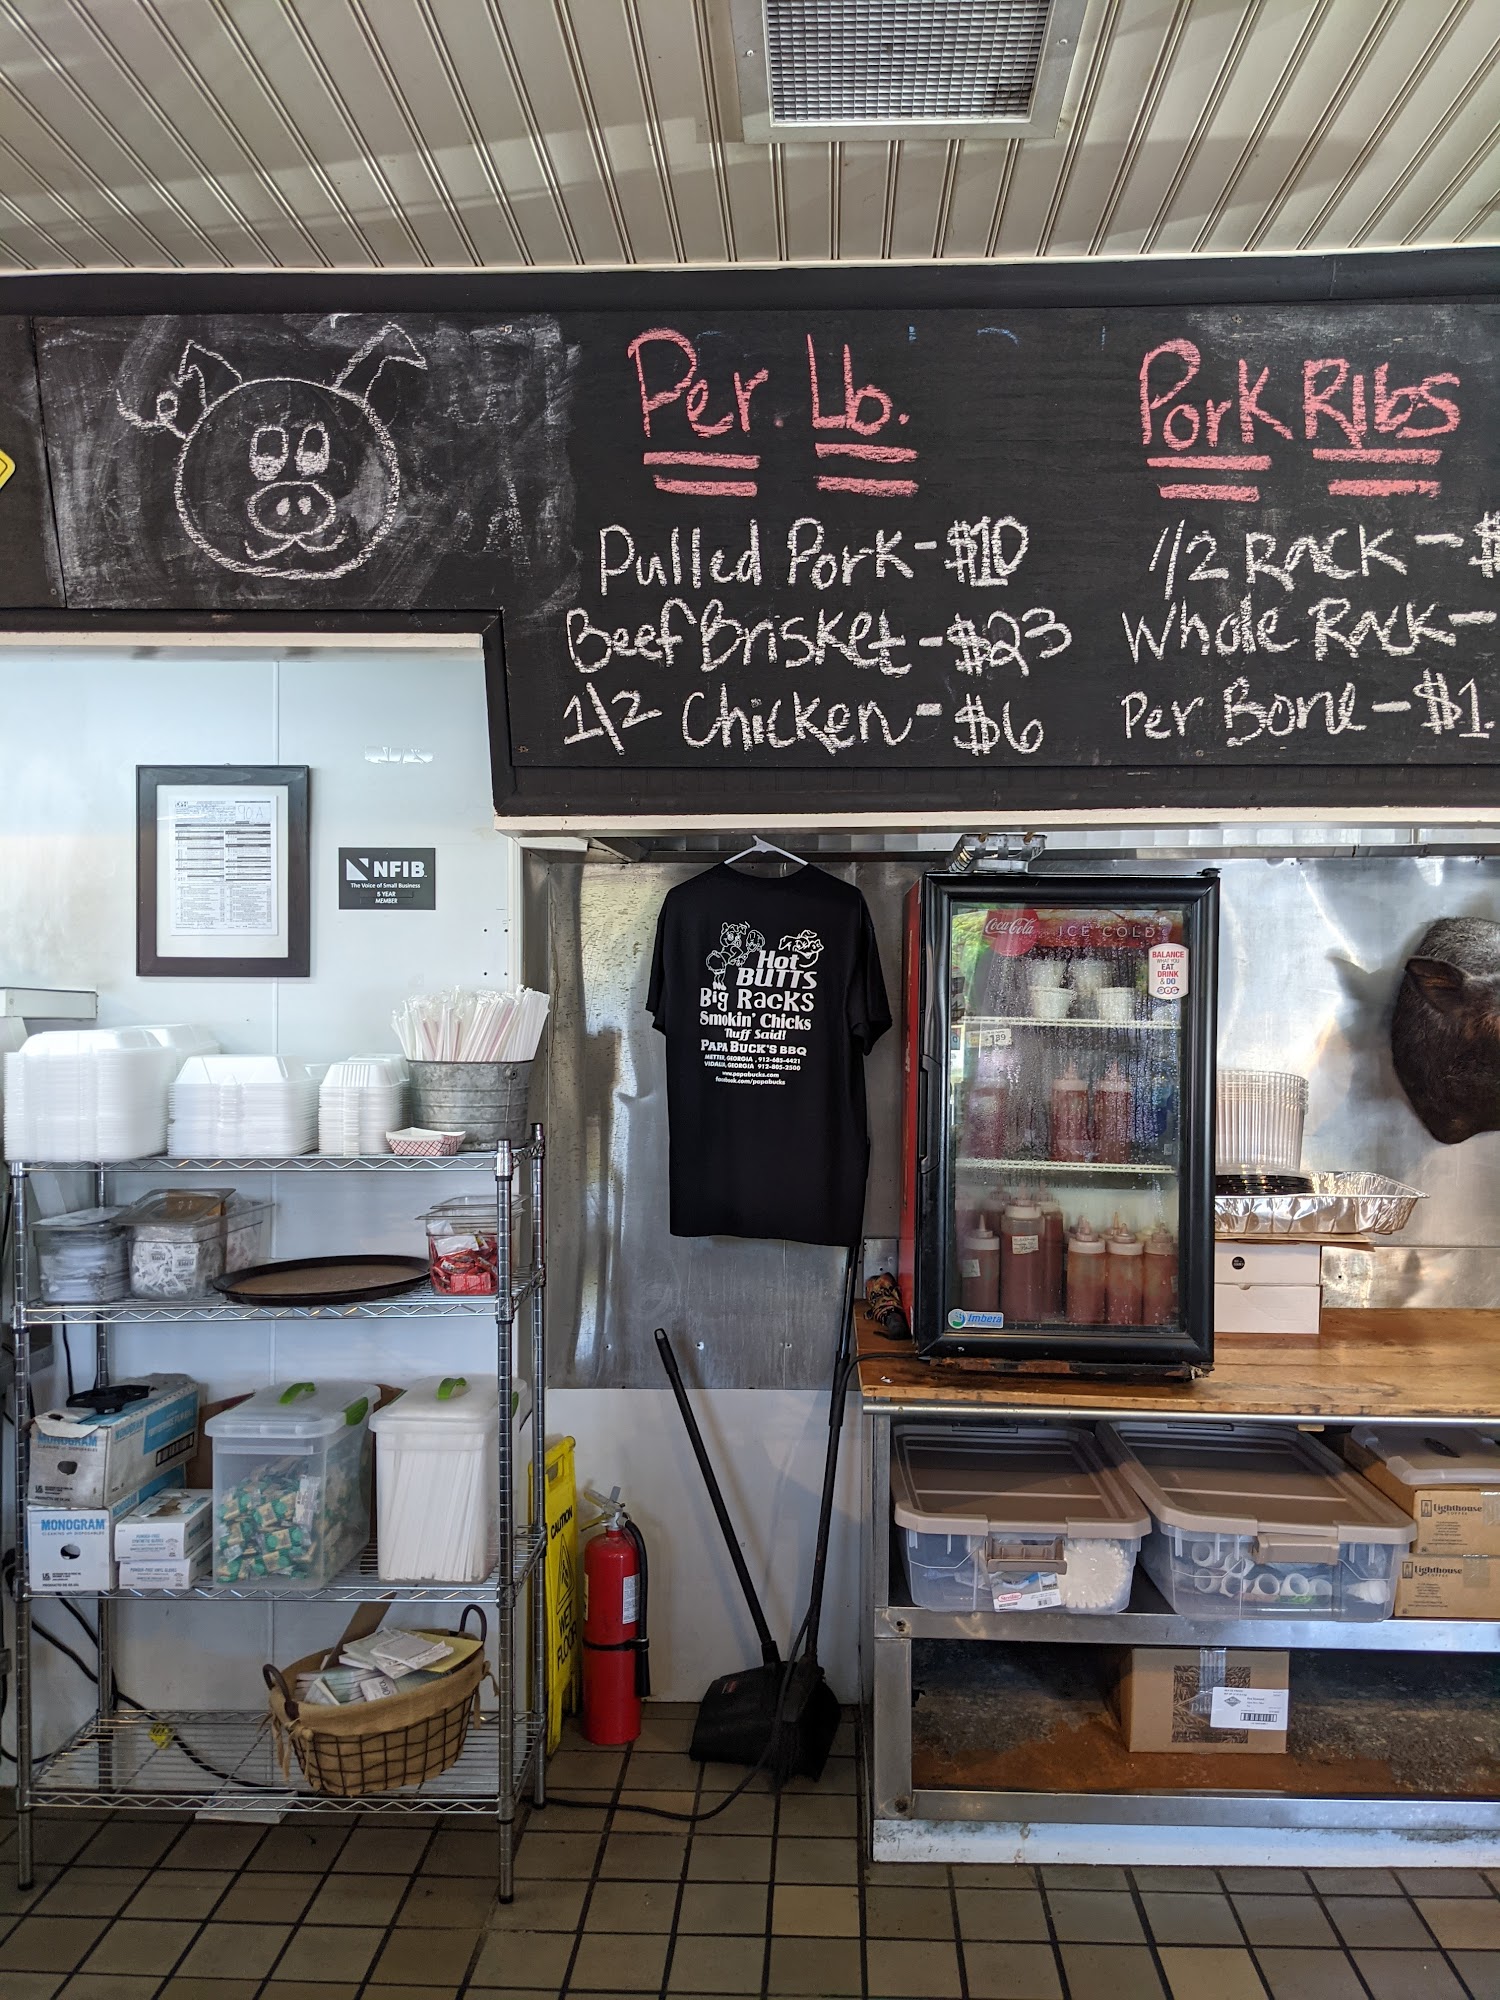 Per Lb.
Pulled Pork - $10
Beef Brisket - $23
1/2 Chicken - $6
Pork Ribs
1/2 Rack - $
Whole Rack -
Per Bone - $1.
90A
NFIB
The Voice of Small Business
5 YEAR
MEMBER
Hot
BUTTS
Big Racks
Smokin' Chicks
'Nuff Said!
PAPA BUCK'S BBQ
METTER, GEORGIA , 912-685-4421
VIDALIA, GEORGIA 912-805-2500
www.papabucks.com
facebook.com/papabucks
Coca-Cola
ICE COLD
BALANCE
WHAT YOU
EAT
DRINK
& DO
Imbera
MONOGRAM
MONOGRAM
CAUTION
WET
FLOOR
Lighthouse
COFFEE
Lighthouse
COFFEE